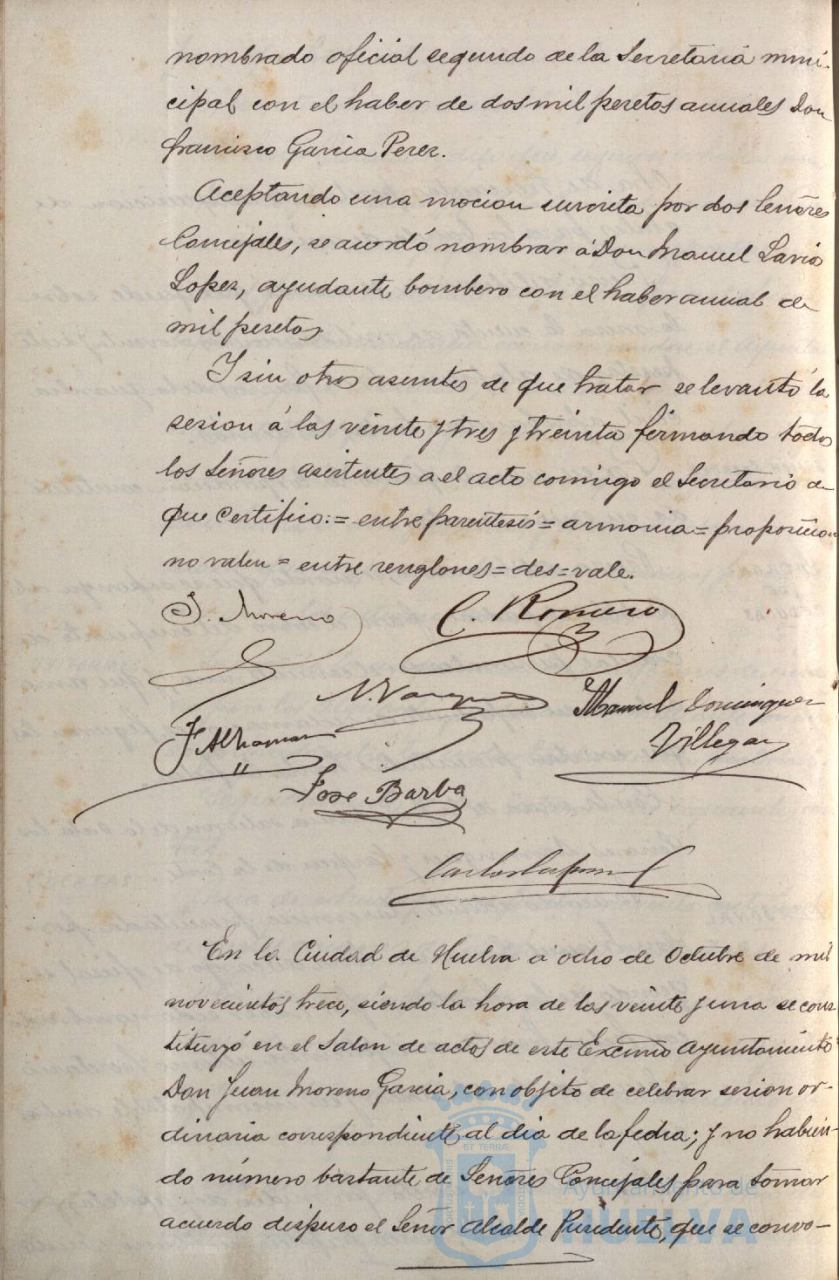 nombrado oficial segundo de la Secretaria muni-
cipal con el haber de dos mil pesetas anuales Don
Francisco Garcia Perez.
Aceptando una mocion suscrita por dos Señores
Concejales, se acordó nombrar á Don Manuel
Lopez, ayudante bombero con el haber anual de
mil pesetas
Y sin otros asuntos de que tratar se levantó la
sesion á las veinte y tres y treinta firmando todos
los Señores asistentes a el acto conmigo el Secretario de
que certifico: = entre parentesis = armonia = proposicion
no valen = entre renglones = des = vale.
J. Moreno C. Romero
Manuel Dominguez
Villegas
Jose Barba
En la Ciudad de Huelva á ocho de Octubre de mil
novecientos trece, siendo la hora de las veinte y una se cons
tituyó en el Salon de actos de este Excmo Ayuntamiento
Don Juan Moreno Garcia, con objeto de celebrar sesion or-
dinaria correspondiente al dia de la fecha; y no habien-
do número bastante de Señores Concejales para tomar
acuerdo dispuso el Señor Alcalde Presidente, que se convo-
Ayuntamiento de
HUELVA